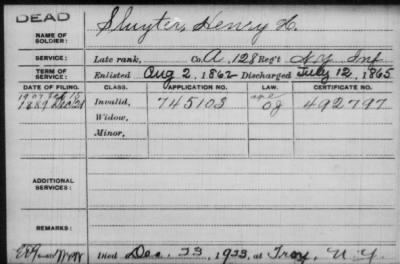 DEAD
Sluyter, Henry H.
NAME OF
SOLDIER:
SERVICE: Late rank, Co. A, 128 Reg't N.Y. Inf
TERM OF
SERVICE: Enlisted Aug 2, 1862 Discharged July 12, 1865
DATE OF FILING. CLASS. APPLICATION NO. LAW. CERTIFICATE NO.
1907 Feb 15
1889 Dec Invalid, 745103 492797
Widow,
Minor,
ADDITIONAL
SERVICES:
REMARKS:
Died Dec. 23, 1923, at Troy, N.Y.